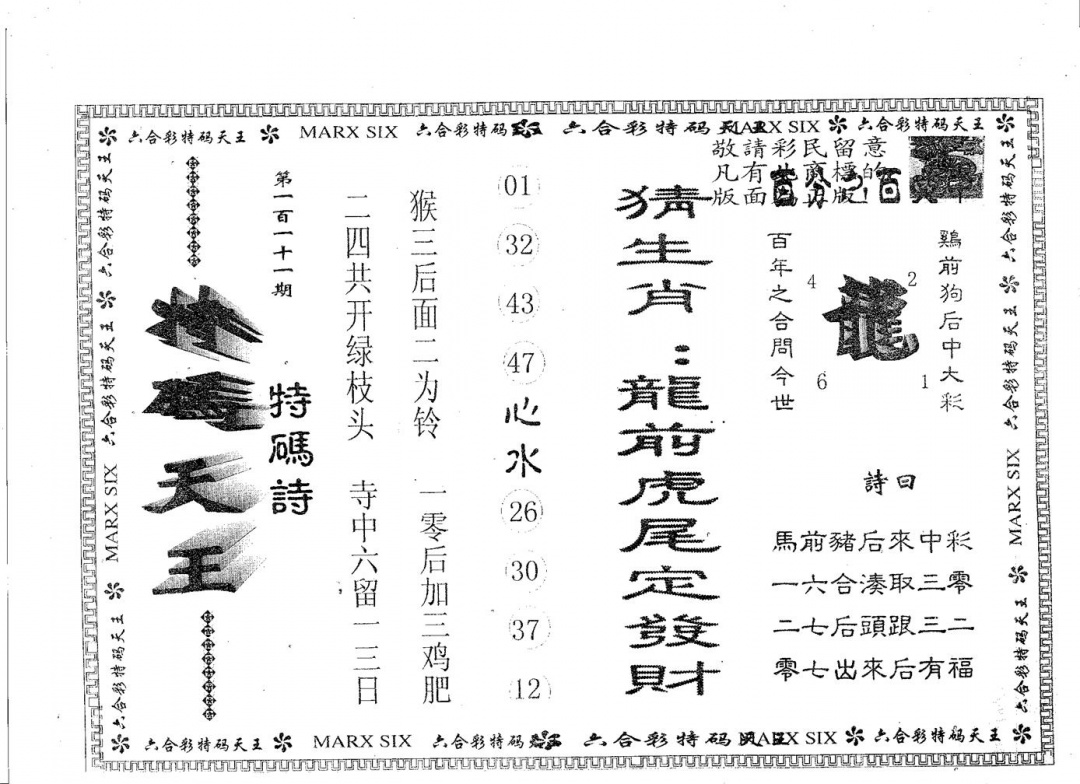 六合彩特码天王 MARX SIX 六合彩特码 六合彩特码 MARX SIX 六合彩特码天王
敬請彩民留意
凡有 商標的
版面 版!
六合彩特码天王
六合彩特码天王
六合彩特码天王
MARX SIX
六合彩特码天王
特碼天王
第一百一十一期
特碼詩
二四共开绿枝头 寺中六留一三日
猴三后面二为铃 一零后加三鸡肥
01
32
43
47
心水
26
30
37
12
猜生肖:龍前虎尾定發財
百年之合問今世
4
2
龍
6
1
鷄前狗后中大彩
詩曰
馬前豬后來中彩
一六合湊取三零
二七后頭跟三二
零七出來后有福
六合彩特码天王
六合彩特码天王
MARX SIX
六合彩特码天王
六合彩特码天王 MARX SIX 六合彩特码 六合彩特码 MARX SIX 六合彩特码天王